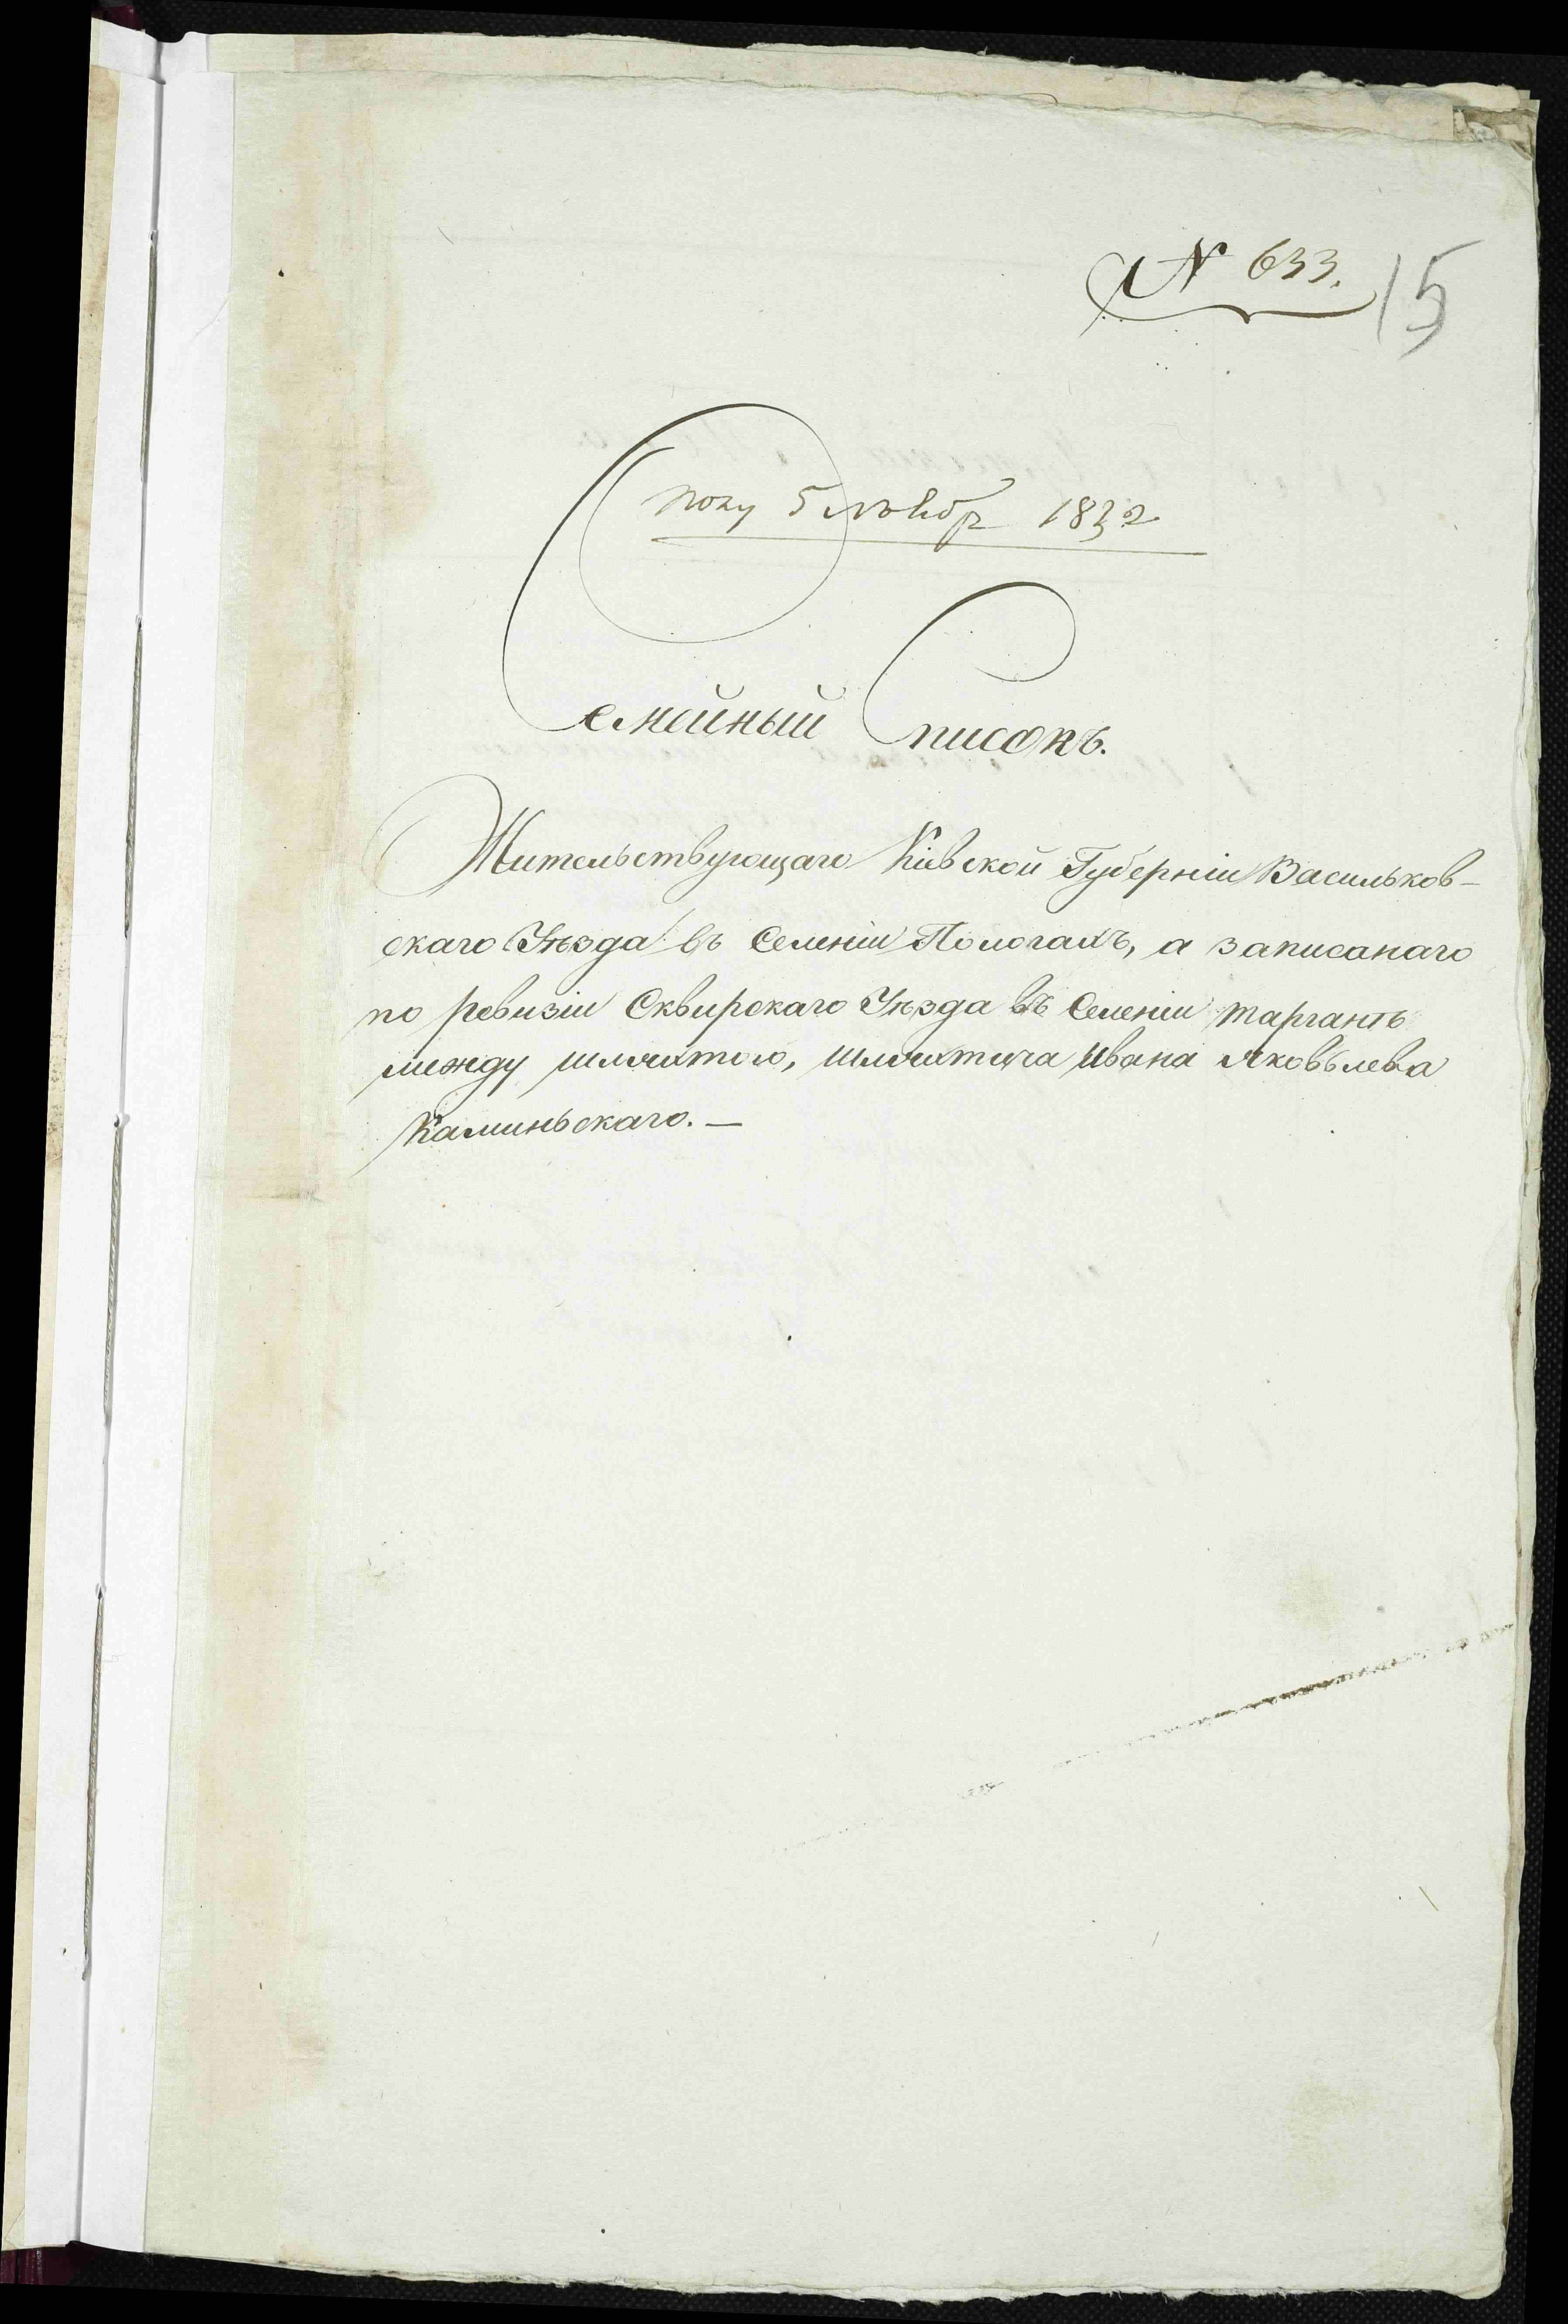 № 633.
15
5 Ноября 1832
Семейный Списокъ.
Жительствующаго Кіевской Губерніи Васильков-
скаго Уѣзда въ Селеніи Пологахъ, а записанаго
по ревизіи Сквирскаго Уѣзда въ Селеніи таргань
между шляхтою, Шляхтича Ивана Яковьлева
Каминьскаго. —